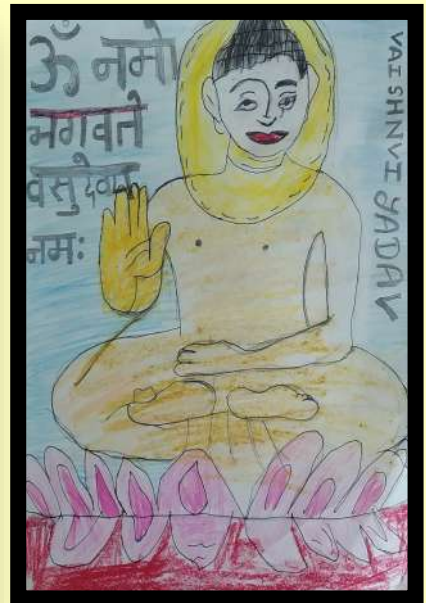 ॐ नमो
भगवते
वसुदेवाय
नमः
VAISHNVI YADAV